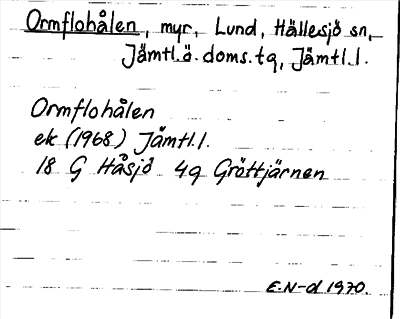 Ormflohålen, myr, Lund, Hällesjö sn,
Jämtl.ö.doms.tg, Jämtl.l.
Ormflohålen
ek (1968) Jämtl.l.
18 G Håsjö 4g Gröttjärnen
E.N-d 1970.